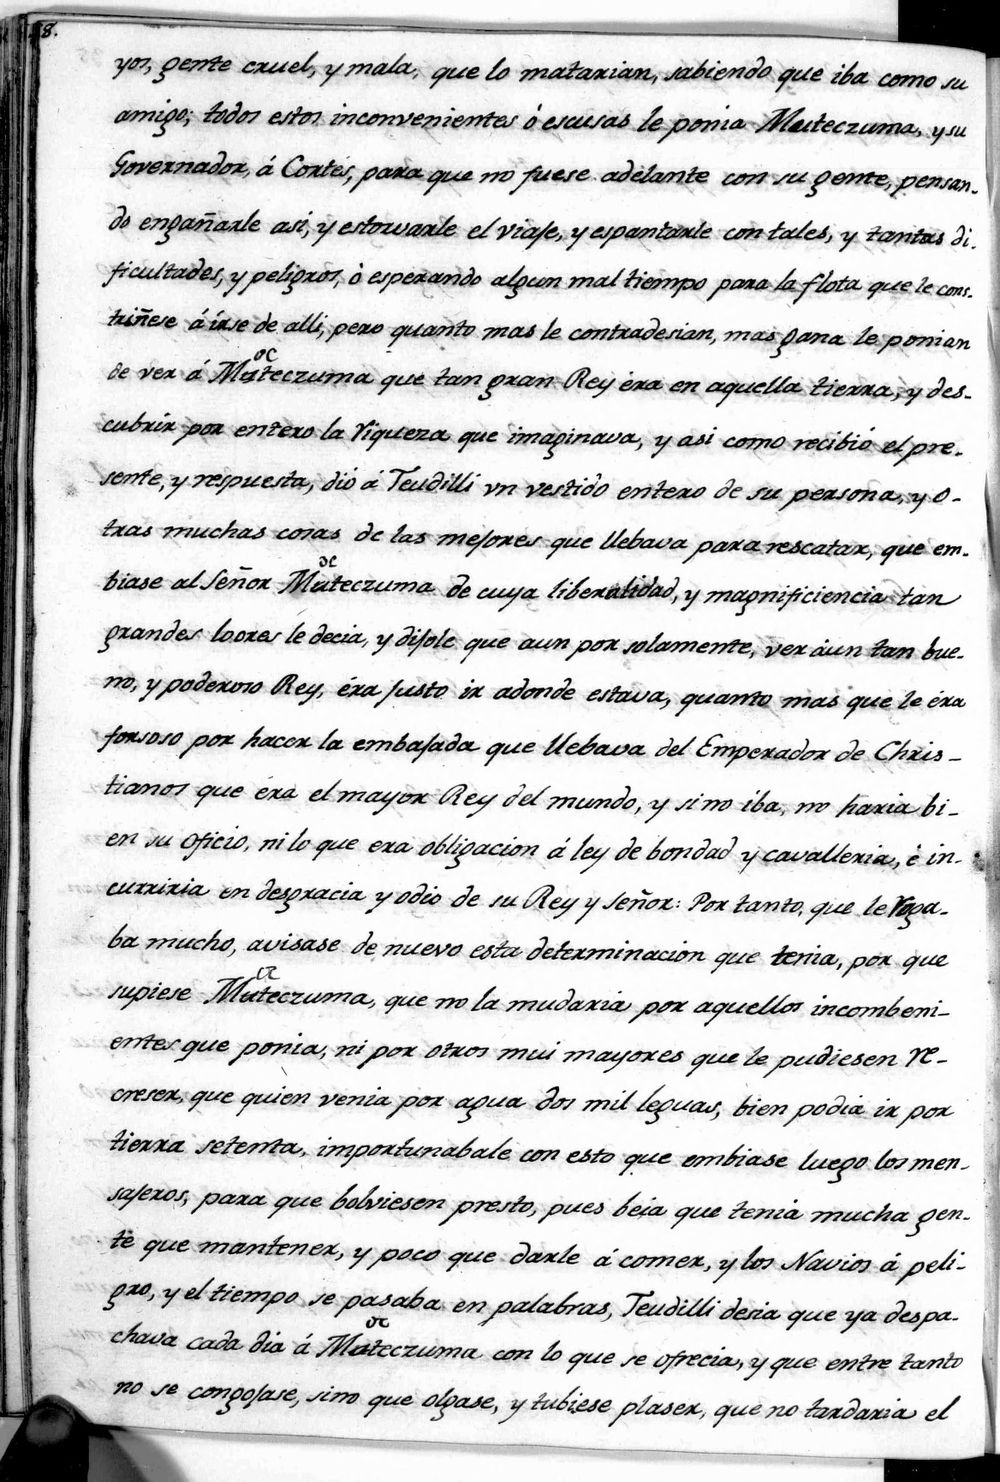 28.
yos, gente cruel, y mala, que lo matarian, sabiendo que iba como su
amigo; todos estos inconvenientes ó escusas le ponia Muteczuma, y su
Governador, á Cortés, para que no fuese adelante con su gente, pensan-
do engañarle asi, y estorvarle el viaje, y espantarle con tales, y tantas di-
ficultades, y peligros, ò esperando algun mal tiempo para la flota que le cons-
triñese á írse de alli, pero quanto mas le contradesian, mas gana le ponian
de ver á Muteczuma que tan gran Rey éra en aquella tierra, y des-
cubrir por entero la riqueza que imaginava, y asi como recibió el pre-
sente, y respuesta, dió á Teudilli vn vestido entero de su persona, y o-
tras muchas cosas de las mejores que llebava para rescatar, que em-
biase al Señor Muteczuma de cuya liberalidad, y magnificiencia tan
grandes loores le decia, y dijole que aun por solamente, ver áun tan bue-
no, y poderoso Rey, éra justo ir adonde estava, quanto mas que le éra
forsoso por hacer la embajada que llebava del Emperador de Chris-
tianos que éra el mayor Rey del mundo, y si no iba, no haria bi-
en su oficio, ni lo que era obligacion á ley de bondad y cavalleria, é in-
curriria en desgracia y odio de su Rey y señor: Por tanto, que le roga-
ba mucho, avisase de nuevo esta determinacion que tenia, por que
supiese Muteczuma, que no la mudaria por aquellos incombeni-
entes que ponia, ni por otros mui mayores que le pudiesen re-
creser, que quien venia por agua dos mil leguas, bien podia ir por
tierra setenta, importunabale con esto que embiase luego los men-
sajeros, para que bolviesen presto, pues beia que tenia mucha gen-
te que mantener, y poco que darle á comer, y los Navios á peli-
gro, y el tiempo se pasaba en palabras, Teudilli desia que ya despa-
chava cada dia á Muteczuma con lo que se ofrecia, y que entre tanto
no se congojase, sino que olgase, y tubiese plaser, que no tardaria el